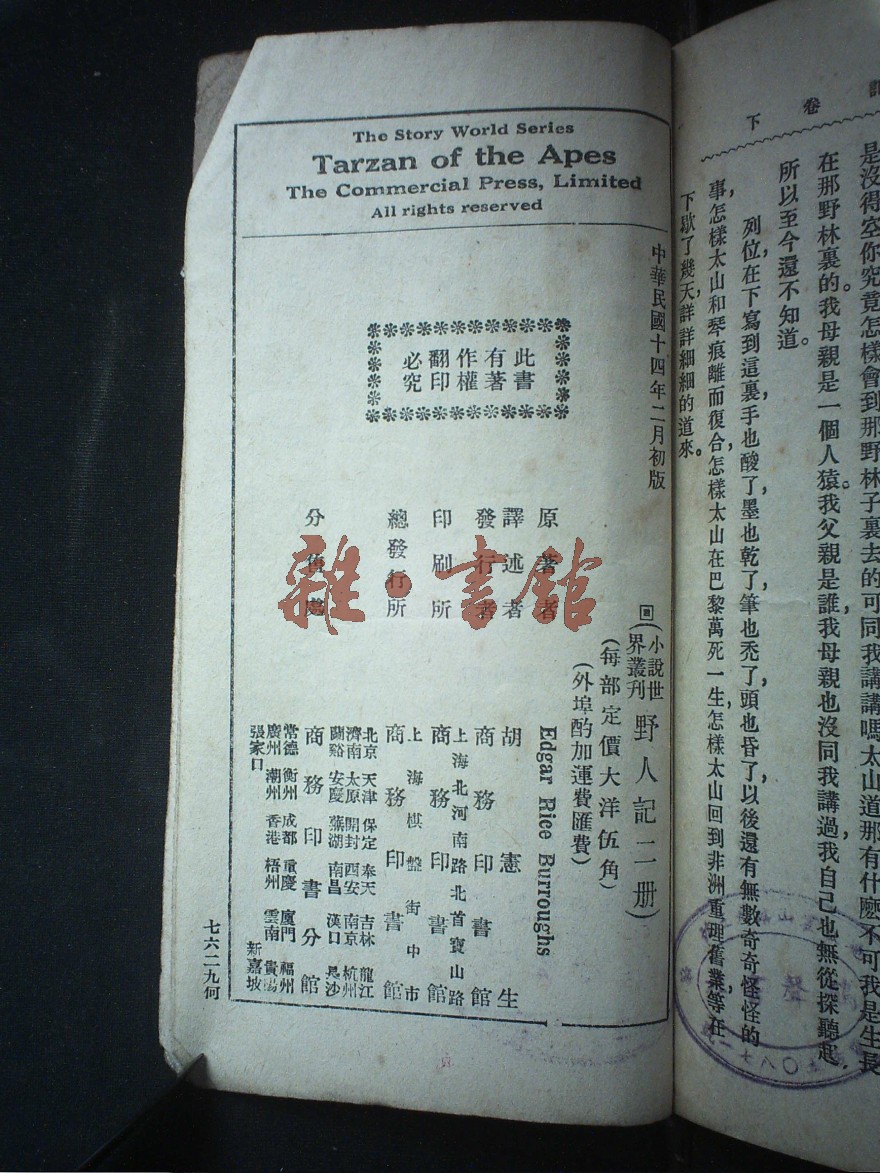 記
卷
下
是沒得空你究竟怎樣會到那野林子裏去的可同我講講嗎太山道那有什麽不可我是生長
在那野林裏的我母親是一個人猿。我父親是誰我母親也沒同我講過我自己也無從探聽起,
所以至今還不知道。
列位,在下寫到這裏手也酸了,墨也乾了,筆也禿了,頭也昏了,以後還有無數奇奇怪怪的
事,怎樣太山和琴痕離而復合,怎樣太山在巴黎萬死一生,怎樣太山回到非洲重理舊業,等在
下歇了幾天,詳詳細細的道來。
The Story World Series
Tarzan of the Apes
The Commercial Press, Limited
All rights reserved
中華民國十四年二月初版
此書
有著
作權
翻印
必究
(小說世
界叢刊 野人記二册)
(每部定價大洋伍角)
(外埠酌加運費匯費)
原著者 Edgar Rice Burroughs
譯述者 胡憲生
發行者 商務印書館
印刷所 上海北河南路北首寶山路
商務印書館
總發行所 上海棋盤街中市
商務印書館
分售處 商務印書分館
北京 天津 保定 奉天 吉林 龍江
濟南 太原 開封 西安 南京 杭州
蘭谿 安慶 蕪湖 南昌 漢口 長沙
常德 衡州 成都 重慶 廈門 福州
廣州 潮州 香港 梧州 雲南 貴陽
張家口 新嘉坡
七六二九何
雜·書館